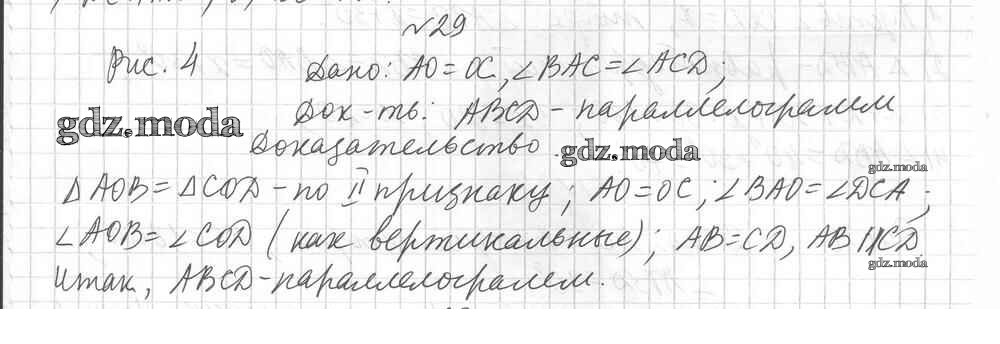 №29
Рис. 4 Дано: AO = OC, ∠BAC = ∠ACD;
Док-ть: ABCD - параллелограмм
gdz.moda
Доказательство
gdz.moda
gdz.moda
△AOB = △COD - по II признаку; AO = OC; ∠BAO = ∠DCA;
∠AOB = ∠COD (как вертикальные); AB = CD, AB || CD
gdz.moda
Итак, ABCD - параллелограмм.